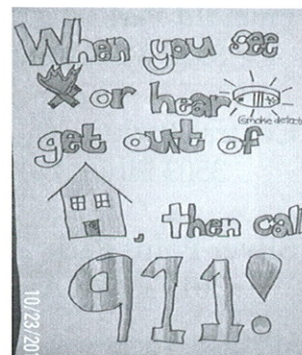 When you see
or hear
(smoke detect
get out of
, then call
911!
10/23/20